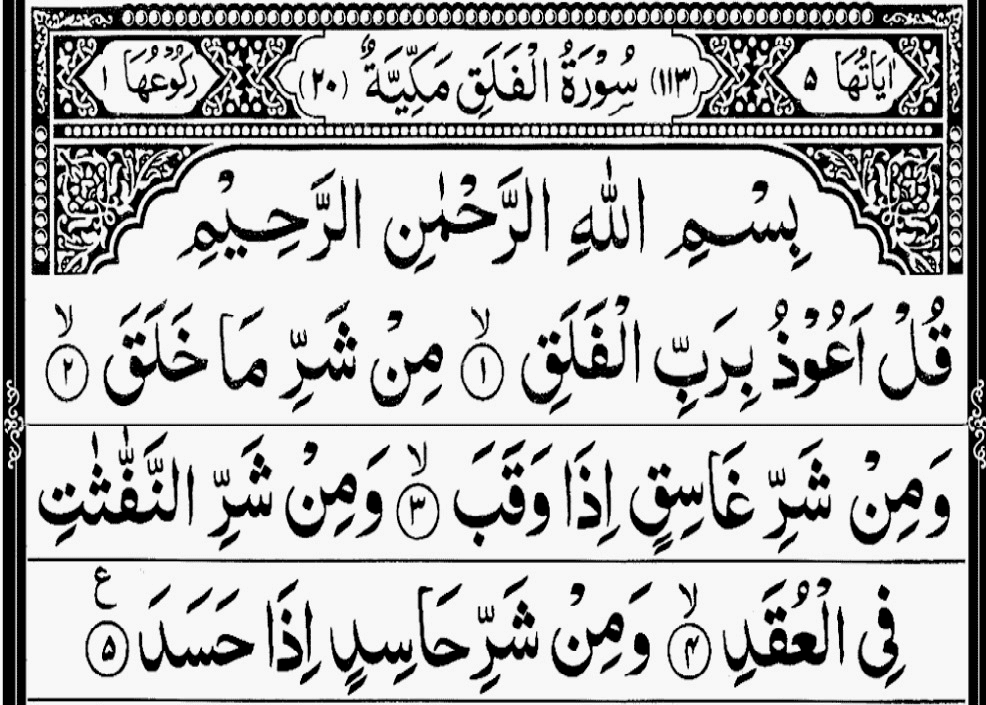 اٰيَاتُهَا ۵ (۱۱۳) سُوْرَةُ الْفَلَقِ مَكِّيَّةٌ (۲۰) رُكُوْعُهَا ۱
بِسْمِ اللّٰهِ الرَّحْمٰنِ الرَّحِيْمِ
قُلْ اَعُوْذُ بِرَبِّ الْفَلَقِ ۙ ۱ مِنْ شَرِّ مَا خَلَقَ ۙ ۲
وَمِنْ شَرِّ غَاسِقٍ اِذَا وَقَبَ ۙ ۳ وَمِنْ شَرِّ النَّفّٰثٰتِ
فِى الْعُقَدِ ۙ ۴ وَمِنْ شَرِّ حَاسِدٍ اِذَا حَسَدَ ۵ ع